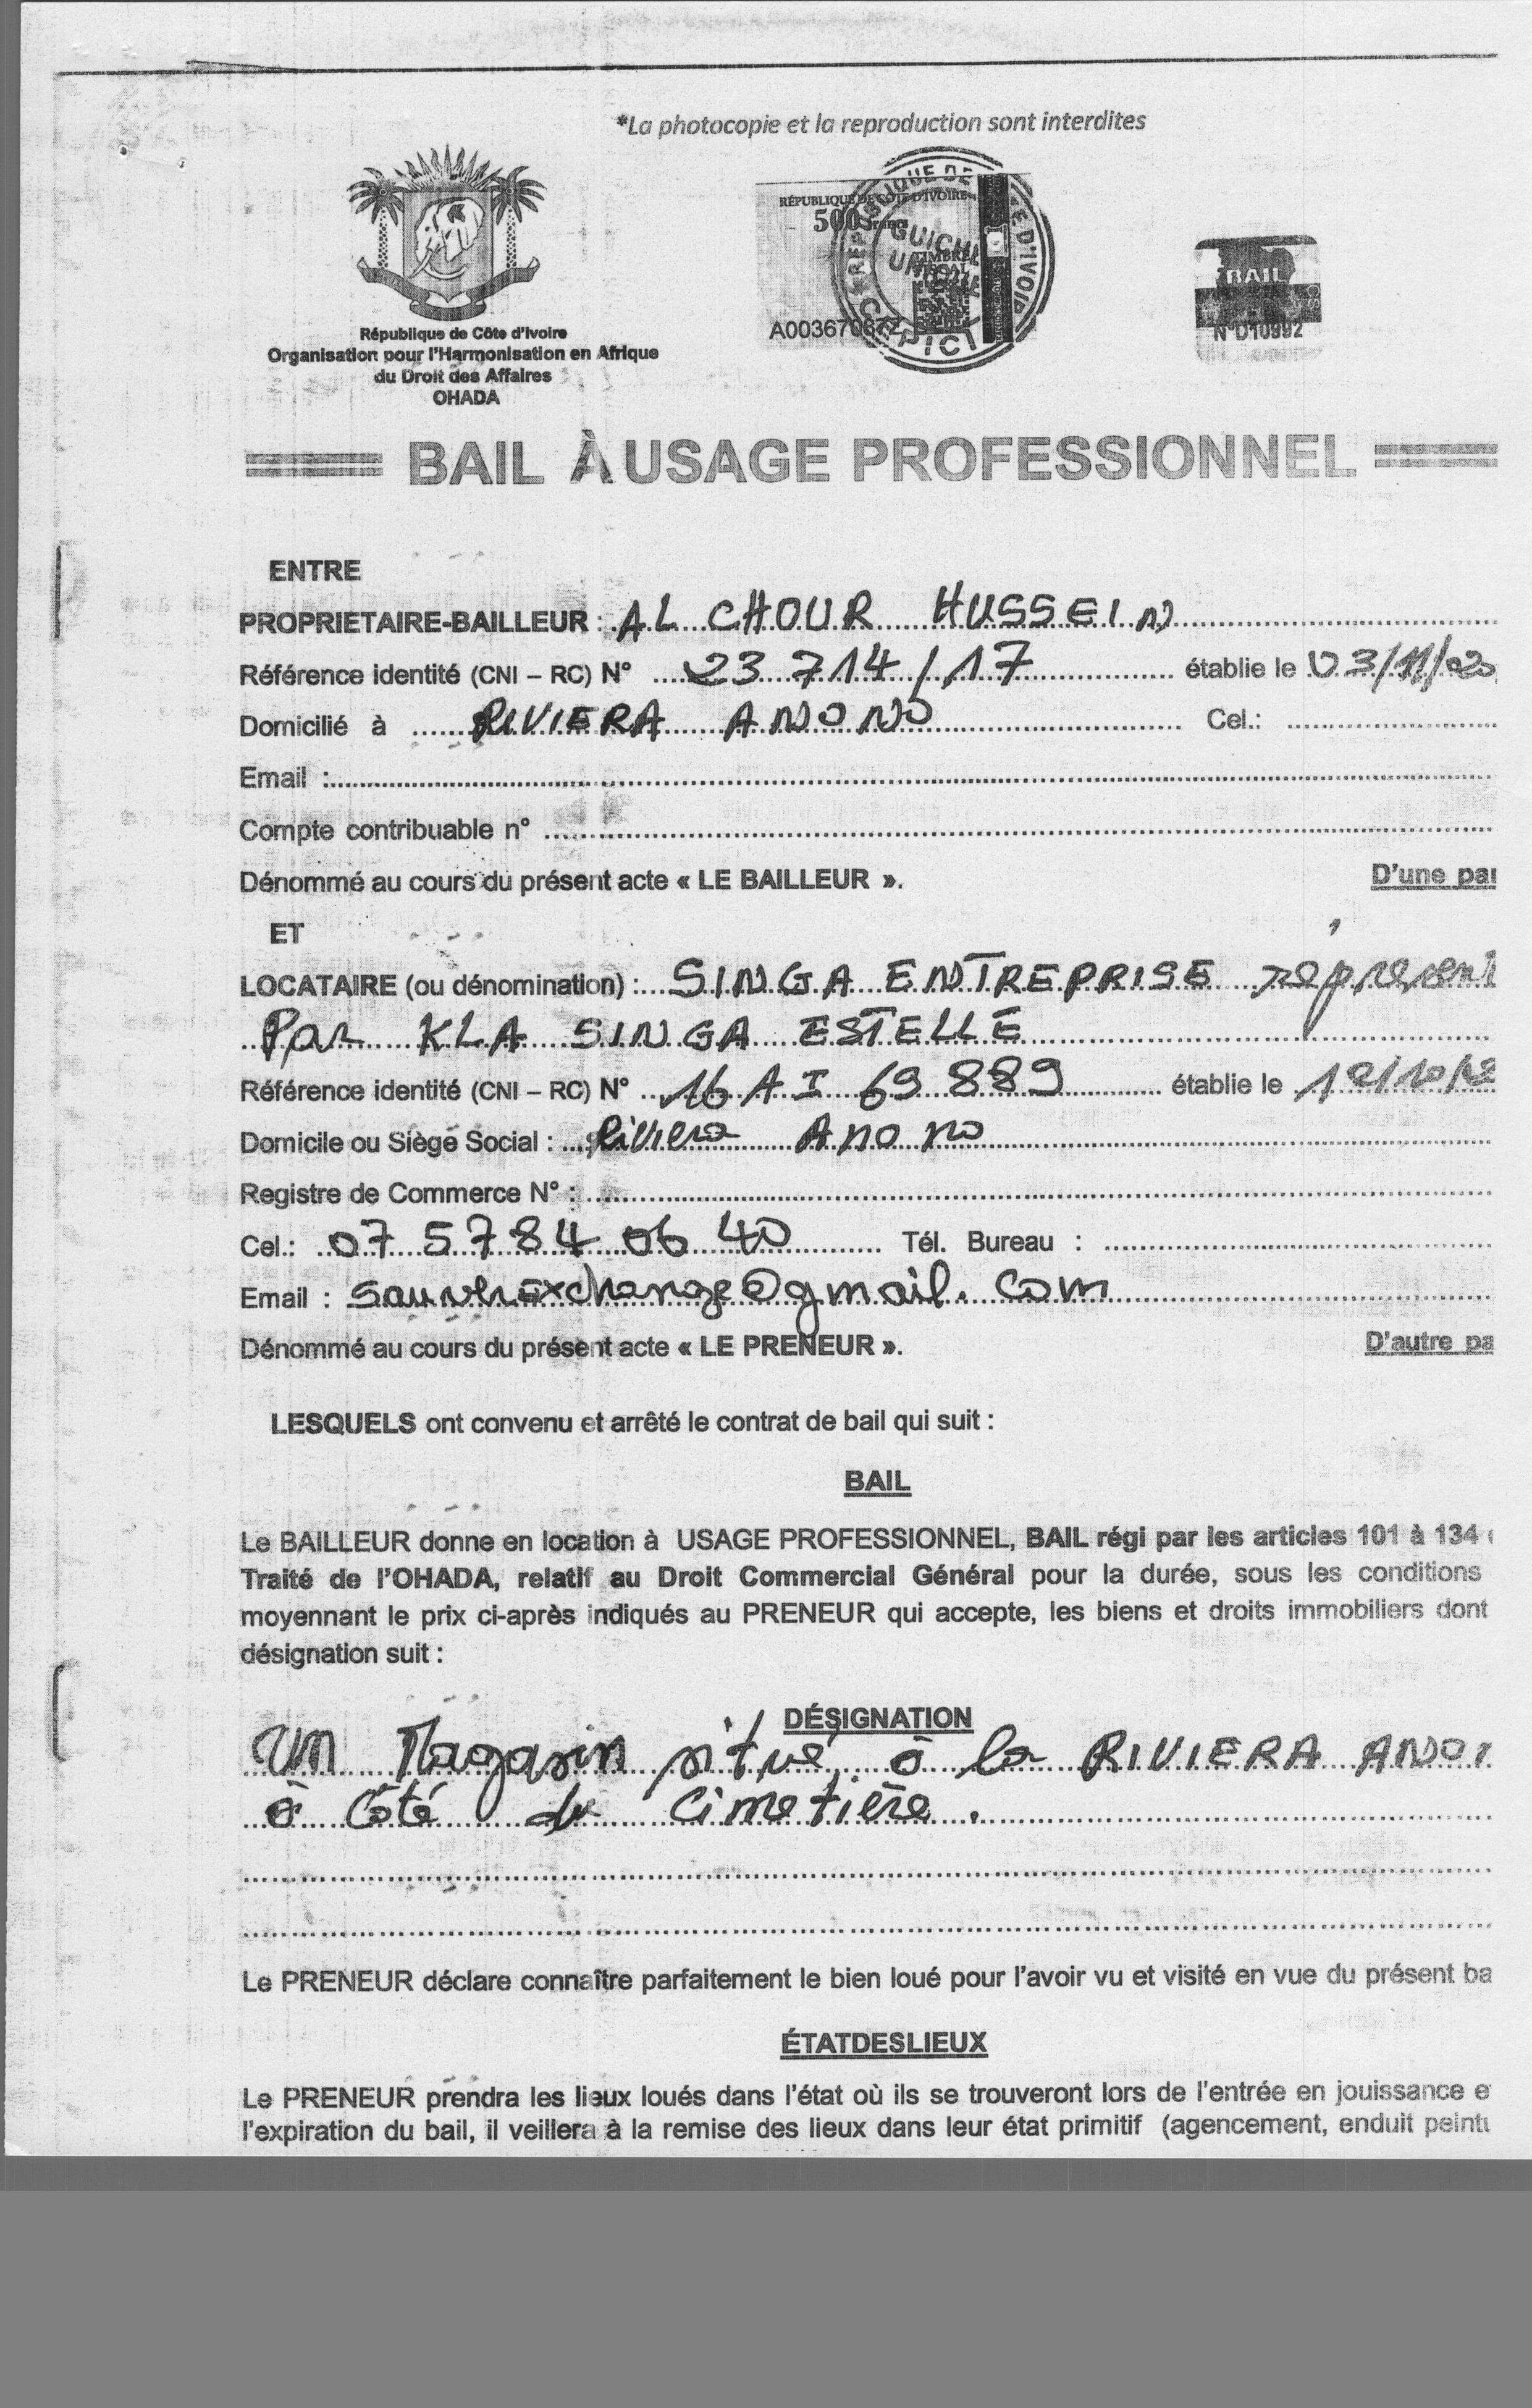 *La photocopie et la reproduction sont interdites
RÉPUBLIQUE DE CÔTE D'IVOIRE
500 Francs
TIMBRE
FISCAL
GUICHET UNIQUE
CEPICI
A003670872
BAIL
N°D10992
République de Côte d'Ivoire
Organisation pour l'Harmonisation en Afrique
du Droit des Affaires
OHADA
BAIL À USAGE PROFESSIONNEL
ENTRE
PROPRIETAIRE-BAILLEUR : AL CHOUR HUSSEIN
Référence identité (CNI – RC) N° 23 714 / 17 établie le 03/11/20
Domicilié à RIVIERA ANONO Cel.:
Email :
Compte contribuable n°
Dénommé au cours du présent acte « LE BAILLEUR ». D'une par
ET
LOCATAIRE (ou dénomination) : SINGA ENTREPRISE représent
Par KLA SINGA ESTELLE
Référence identité (CNI – RC) N° 16 A I 69 889 établie le
Domicile ou Siège Social : Riviera Anono
Registre de Commerce N° :
Cel.: 07 57 84 06 40 Tél. Bureau :
Email :
Dénommé au cours du présent acte « LE PRENEUR ». D'autre pa
LESQUELS ont convenu et arrêté le contrat de bail qui suit :
BAIL
Le BAILLEUR donne en location à USAGE PROFESSIONNEL, BAIL régi par les articles 101 à 134
Traité de l'OHADA, relatif au Droit Commercial Général pour la durée, sous les conditions
moyennant le prix ci-après indiqués au PRENEUR qui accepte, les biens et droits immobiliers dont
désignation suit :
DÉSIGNATION
Un Magasin situé à la RIVIERA ANO
à Côté du Cimetière.
Le PRENEUR déclare connaître parfaitement le bien loué pour l'avoir vu et visité en vue du présent ba
ÉTATDESLIEUX
Le PRENEUR prendra les lieux loués dans l'état où ils se trouveront lors de l'entrée en jouissance e
l'expiration du bail, il veillera à la remise des lieux dans leur état primitif (agencement, enduit peint